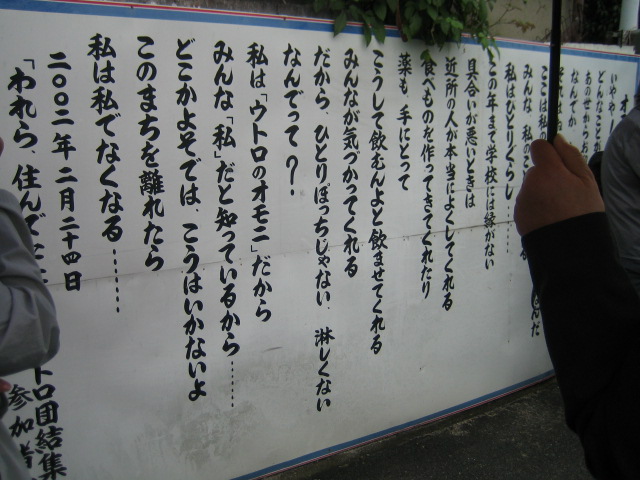 オ
いやや
どんなことが
なんでか
ここは私
みんな、私のこ
私はひとりぐらし……
この年まで学校には縁がない
具合が悪いときは
近所の人が本当によくしてくれる
食べものを作ってきてくれたり
薬も 手にとって
こうして飲むんよと飲ませてくれる
みんなが気づかってくれる
だから、ひとりぼっちじゃない、淋しくない
なんでって?
私は「ウトロのオモニ」だから
みんな「私」だと知っているから……
どこかよそでは、こうはいかないよ
このまちを離れたら
私は私でなくなる……
二〇〇二年二月二十四日
「われら、住んでた
トロ団結集
参加者